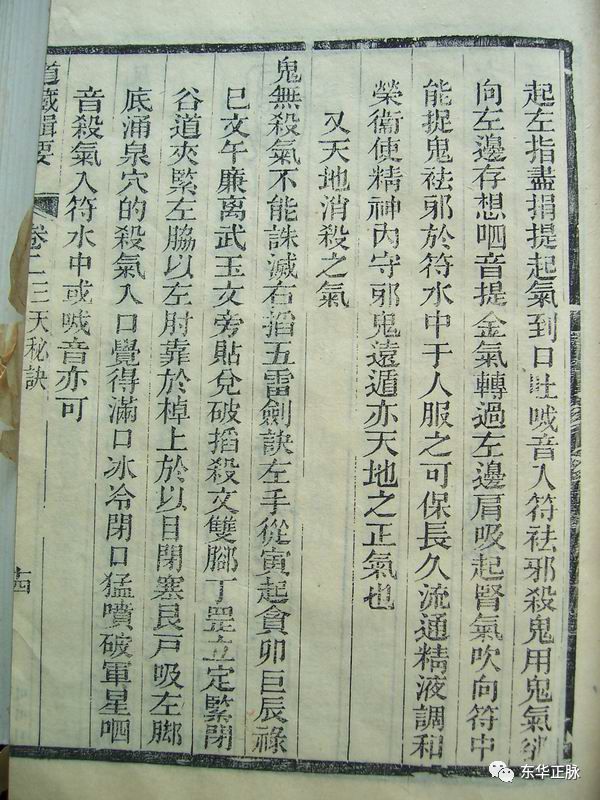 起左指盡捐提起氣到口吐㖑音入符祛邪殺鬼用鬼氣
向左邊存想呬音提金氣轉過左邊肩吸起腎氣吹向符中
能捉鬼祛邪於符水中于人服之可保長久流通精液調和
榮衛使精神內守邪鬼遠遁亦天地之正氣也
又天地消殺之氣
鬼無殺氣不能誅滅右搯五雷劍訣左手從寅起貪卯巨辰祿
巳文午廉离武玉文旁貼兌破搯殺文雙腳丁罡立定緊閉
谷道夾緊左脇以左肘靠於棹上於以目閉塞艮戸吸左脚
底涌泉穴的殺氣入口覺得滿口冰冷閉口猛噴破軍星呬
音殺氣入符水中或㖑音亦可
道藏輯要 卷二三天秘訣 十四
东华正脉